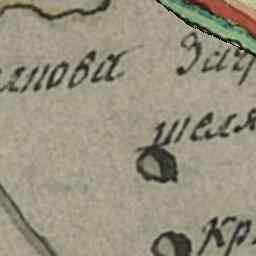 лнова
Зат
шеля
Кр